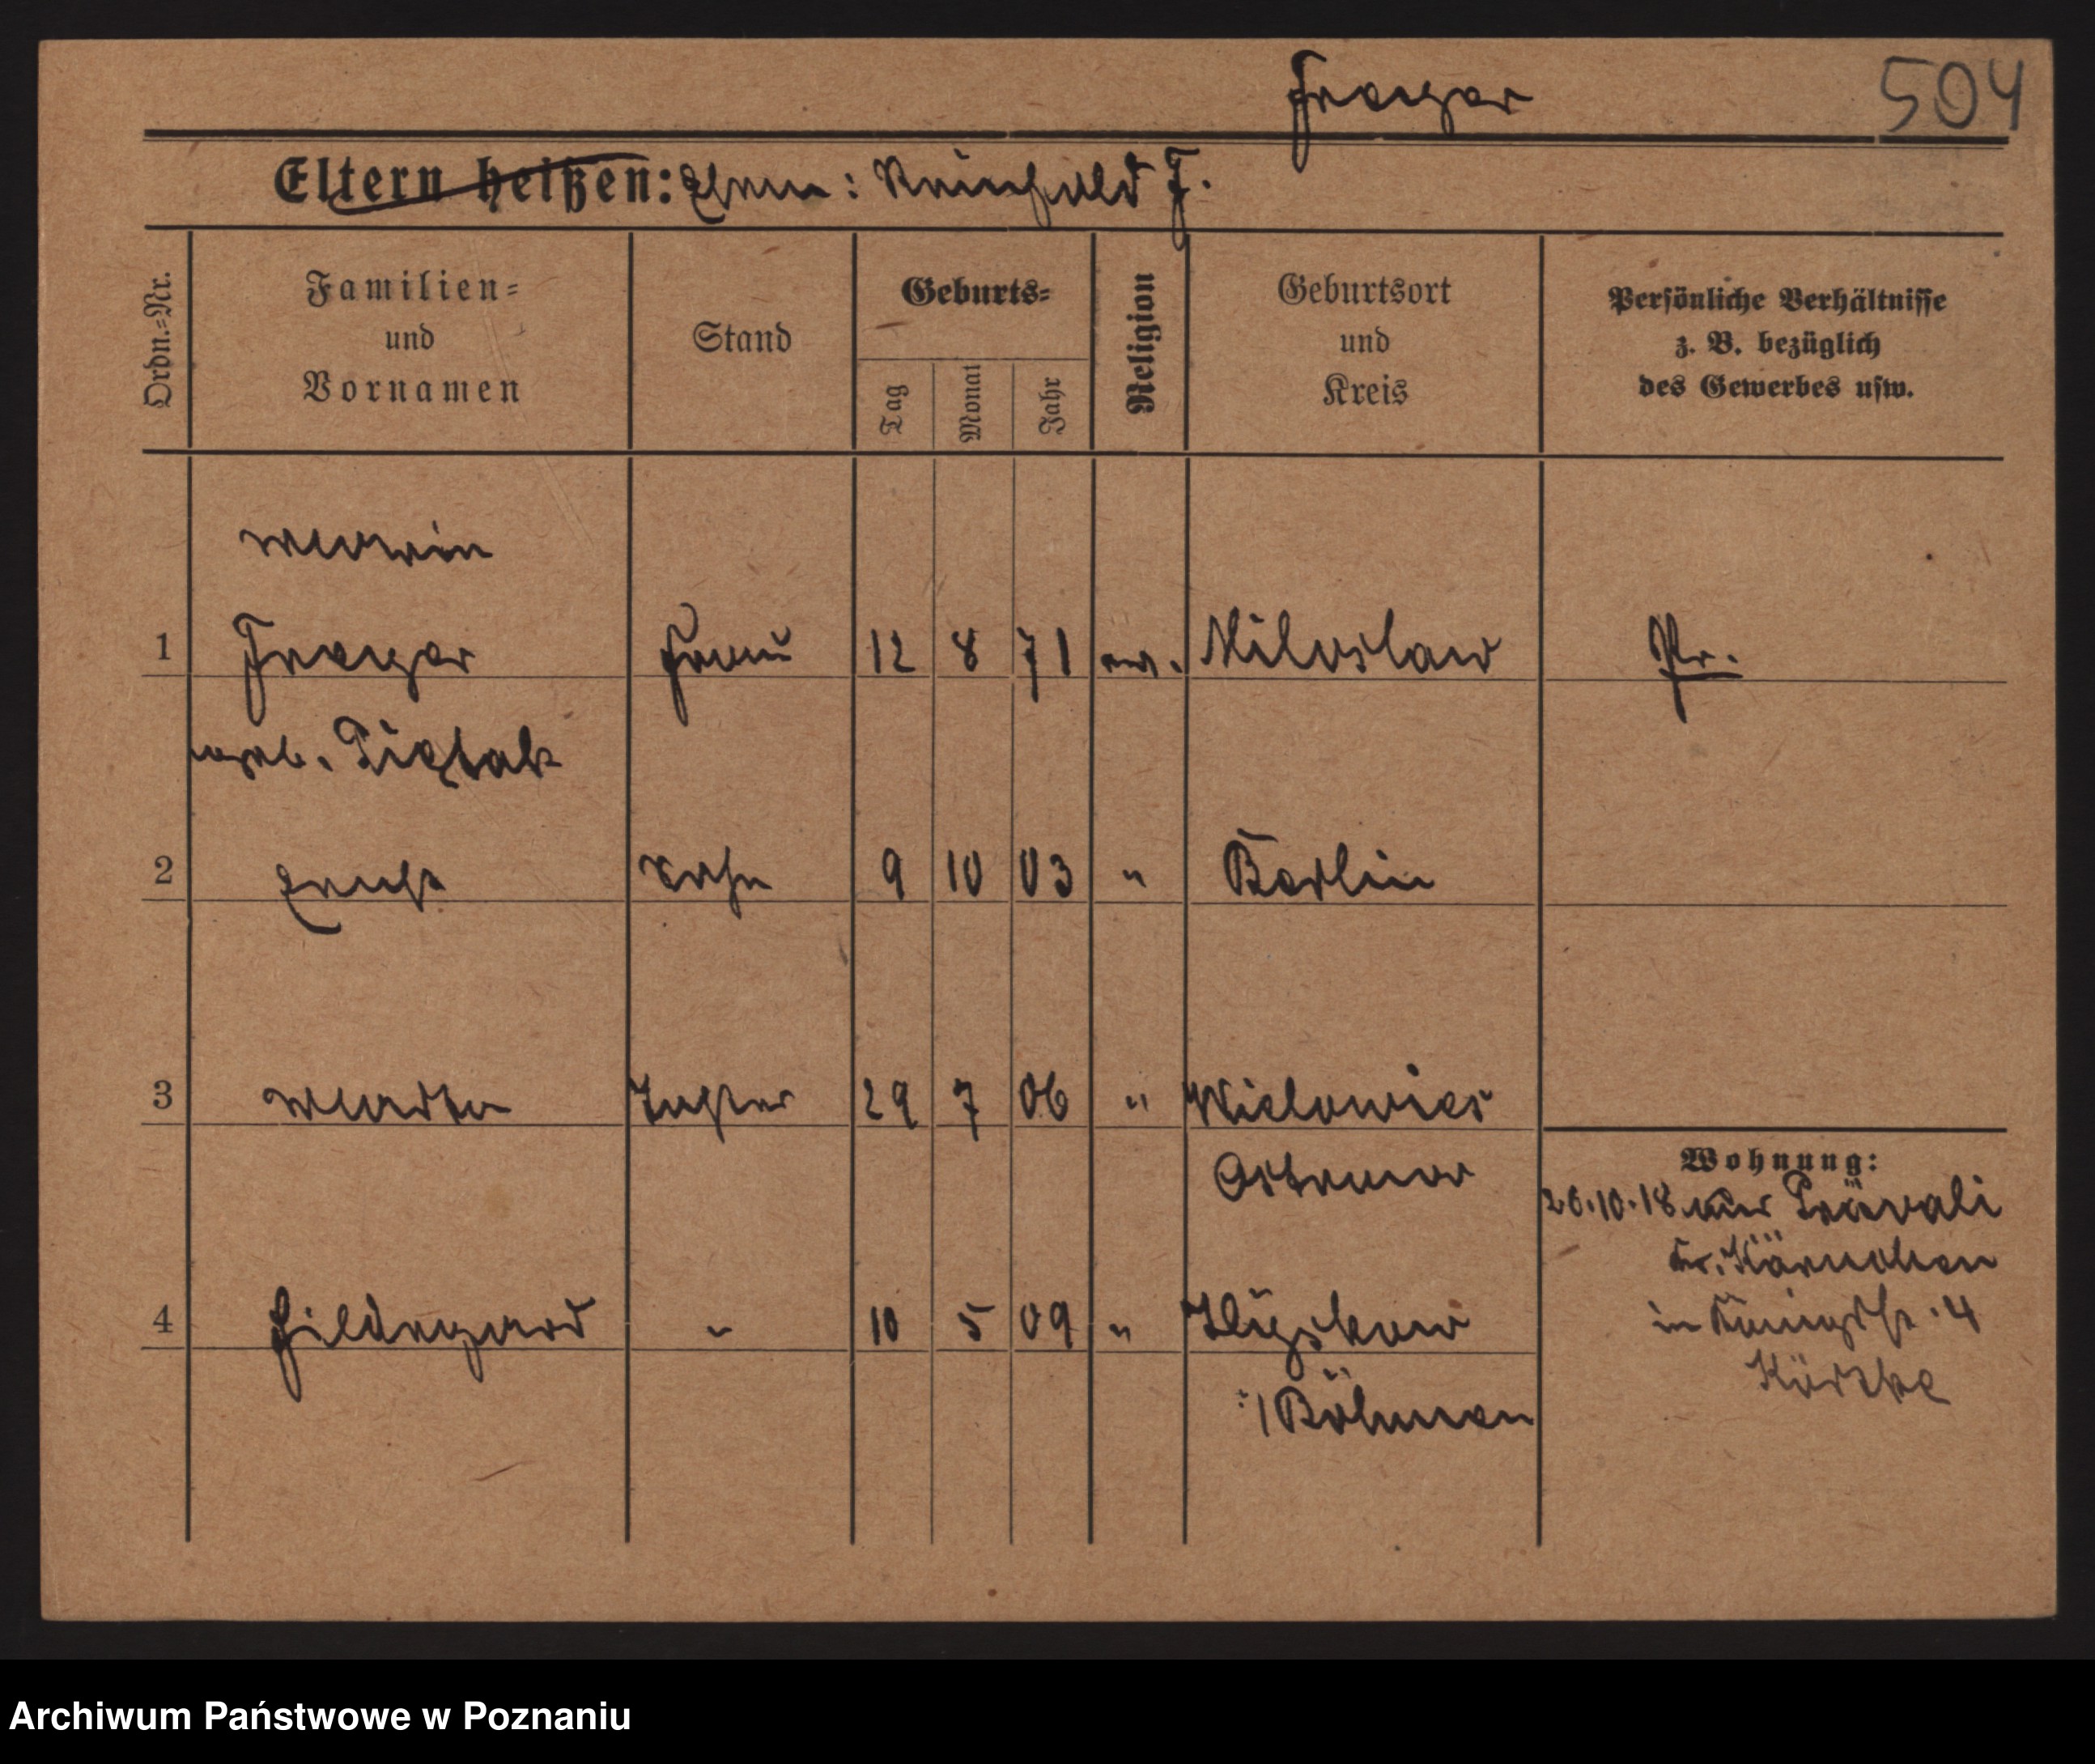 Fraeger
504
Eltern heißen: Ehem: Reinhold F.
Ordn.=Nr.
Familien=
und
Vornamen
Stand
Geburts=
Tag
Monat
Jahr
Religion
Geburtsort
und
Kreis
Persönliche Verhältnisse
z. B. bezüglich
des Gewerbes usw.
Maria
1 Frau 12 8 71 ev. Miloslaw Pr.
geb.
2 Ernst Sohn 9 10 03 " Berlin
3 Martha Tochter 29 7 06 " Wielowies
Wohnung:
20.10.18 aus Prävali
Kr. Kärnthen
4 Hildegard " 10 5 09 "
in Königstr. 4
/ Böhmen
Archiwum Państwowe w Poznaniu